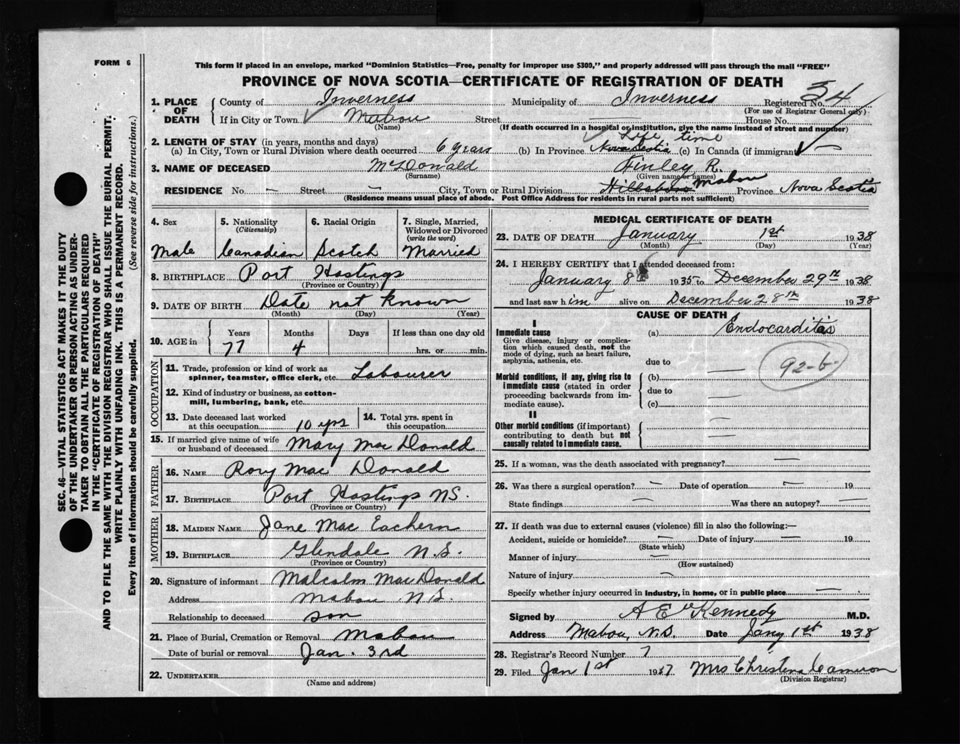 FORM 6
This form if placed in an envelope, marked "Dominion Statistics—Free, penalty for improper use $300," and properly addressed will pass through the mail "FREE"
PROVINCE OF NOVA SCOTIA—CERTIFICATE OF REGISTRATION OF DEATH
34
1. PLACE OF DEATH County of Inverness Municipality of Inverness Registered No.
(For use of Registrar General only)
If in City or Town Mabou Street — House No.
(Name) (If death occurred in a hospital or institution, give the name instead of street and number)
Life time
2. LENGTH OF STAY (in years, months and days)
(a) In City, Town or Rural Division where death occurred 6 years (b) In Province Nova Scotia (c) In Canada (if immigrant) —
3. NAME OF DECEASED McDonald Finley R.
(Surname) (Given name or names)
RESIDENCE No. — Street — City, Town or Rural Division Hillsboro Mabou Province Nova Scotia
(Residence means usual place of abode. Post Office Address for residents in rural parts not sufficient)
4. Sex
Male
5. Nationality
(Citizenship)
Canadian
6. Racial Origin
Scotch
7. Single, Married,
Widowed or Divorced
(write the word)
Married
8. BIRTHPLACE Port Hastings
(Province or Country)
9. DATE OF BIRTH Date not known
(Month) (Day) (Year)
10. AGE in Years Months Days If less than one day old
77 4 hrs. or min.
OCCUPATION
11. Trade, profession or kind of work as
spinner, teamster, office clerk, etc. Labourer
12. Kind of industry or business, as cotton-
mill, lumbering, bank, etc.
13. Date deceased last worked
at this occupation 10 yrs
14. Total yrs. spent in
this occupation
15. If married give name of wife
or husband of deceased Mary MacDonald
FATHER
16. NAME Rory Mac Donald
17. BIRTHPLACE Port Hastings N.S.
(Province or Country)
MOTHER
18. MAIDEN NAME Jane Mac Eachern
19. BIRTHPLACE Glendale N.S.
(Province or Country)
20. Signature of informant Malcolm MacDonald
Address Mabou N.S.
Relationship to deceased son
21. Place of Burial, Cremation or Removal Mabou
Date of burial or removal Jan. 3rd
22. UNDERTAKER
(Name and address)
MEDICAL CERTIFICATE OF DEATH
23. DATE OF DEATH January 1st 1938
(Month) (Day) (Year)
24. I HEREBY CERTIFY that I attended deceased from:
January 8th 1935 to December 29th 1938
and last saw him alive on December 28th 1938
CAUSE OF DEATH
I
Immediate cause
Give disease, injury or complica-
tion which caused death, not the
mode of dying, such as heart failure,
asphyxia, asthenia, etc.
(a) Endocarditis
due to —
92-b
Morbid conditions, if any, giving rise to
immediate cause (stated in order
proceeding backwards from im-
mediate cause).
(b) —
due to —
(c) —
II
Other morbid conditions (if important)
contributing to death but not
causally related to immediate cause.
25. If a woman, was the death associated with pregnancy? —
26. Was there a surgical operation? — Date of operation — 19
State findings — Was there an autopsy? —
27. If death was due to external causes (violence) fill in also the following:—
Accident, suicide or homicide? — Date of injury — 19
(State which)
Manner of injury —
(How sustained)
Nature of injury —
Specify whether injury occurred in industry, in home, or in public place —
Signed by A E Kennedy M.D.
Address Mabou, N.S. Date Jany 1st 1938
28. Registrar's Record Number 7
29. Filed Jan 1st 1937 Mrs Christena Cameron
(Division Registrar)
SEC. 46—VITAL STATISTICS ACT MAKES IT THE DUTY
OF THE UNDERTAKER OR PERSON ACTING AS UNDER-
TAKER TO OBTAIN ALL THE PARTICULARS REQUIRED
IN THE "CERTIFICATE OF REGISTRATION OF DEATH"
AND TO FILE THE SAME WITH THE DIVISION REGISTRAR WHO SHALL ISSUE THE BURIAL PERMIT.
WRITE PLAINLY WITH UNFADING INK. THIS IS A PERMANENT RECORD.
Every item of information should be carefully supplied. (See reverse side for instructions.)